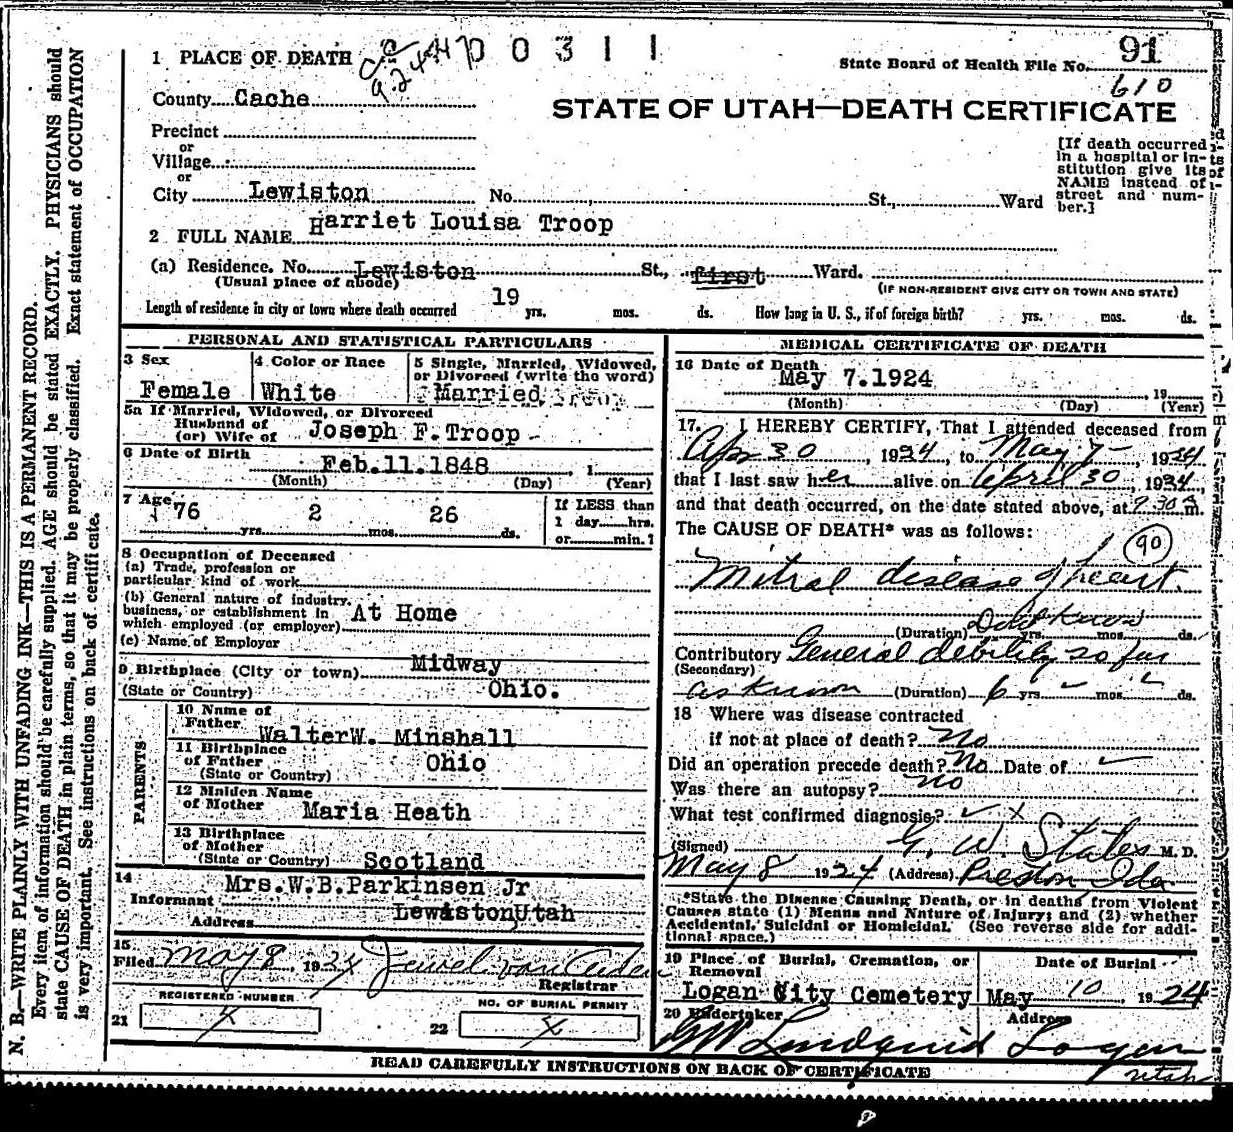 1 PLACE OF DEATH
00311
State Board of Health File No. 91
610
County Cache
STATE OF UTAH—DEATH CERTIFICATE
Precinct
or
Village
or
City Lewiston No. St., Ward
[If death occurred in a hospital or institution give its NAME instead of street and number.]
2 FULL NAME Harriet Louisa Troop
(a) Residence. No. Lewiston St., first Ward.
(Usual place of abode)
(IF NON-RESIDENT GIVE CITY OR TOWN AND STATE)
Length of residence in city or town where death occurred 19 yrs. mos. ds. How long in U. S., if of foreign birth? yrs. mos. ds.
PERSONAL AND STATISTICAL PARTICULARS
3 Sex
Female
4 Color or Race
White
5 Single, Married, Widowed, or Divorced (write the word)
Married
5a If Married, Widowed, or Divorced
Husband of
(or) Wife of Joseph F. Troop
6 Date of Birth
Feb. 11. 1848
(Month) (Day) (Year)
7 Age
76 yrs. 2 mos. 26 ds.
If LESS than
1 day hrs.
or min.?
8 Occupation of Deceased
(a) Trade, profession or
particular kind of work
(b) General nature of industry,
business, or establishment in
which employed (or employer) At Home
(c) Name of Employer
9 Birthplace (City or town) Midway
(State or Country) Ohio.
PARENTS
10 Name of
Father Walter W. Minshall
11 Birthplace
of Father Ohio
(State or Country)
12 Maiden Name
of Mother Maria Heath
13 Birthplace
of Mother
(State or Country) Scotland
14
Informant Mrs. W. B. Parkinsen Jr
Address Lewiston, Utah
15
Filed May 8, 1924 Jewel van Orden
Registrar
REGISTERED NUMBER
21 X
NO. OF BURIAL PERMIT
22 X
MEDICAL CERTIFICATE OF DEATH
16 Date of Death
May 7. 1924, 19
(Month) (Day) (Year)
17. I HEREBY CERTIFY, That I attended deceased from
Apr 30, 1924, to May 7, 1924
that I last saw her alive on April 30, 1924,
and that death occurred, on the date stated above, at 9.30 a m.
The CAUSE OF DEATH* was as follows:
90
Mitral disease of heart.
(Duration) Dont Know yrs. mos. ds.
Contributory General debility so far
(Secondary)
as Known (Duration) 6 yrs. mos. ds.
18 Where was disease contracted
if not at place of death? No
Did an operation precede death? No Date of
Was there an autopsy? No
What test confirmed diagnosis? X
(Signed) G. W. States M. D.
May 8 1924 (Address) Preston, Ida
*State the Disease Causing Death, or in deaths from Violent
Causes state (1) Means and Nature of Injury; and (2) whether
Accidental, Suicidal or Homicidal. (See reverse side for addi-
tional space.)
19 Place of Burial, Cremation, or
Removal
Logan City Cemetery
Date of Burial
May 10, 1924
20 Undertaker
Lindquist
Address
Logan
Utah
READ CAREFULLY INSTRUCTIONS ON BACK OF CERTIFICATE
N. B.—WRITE PLAINLY WITH UNFADING INK—THIS IS A PERMANENT RECORD.
Every item of information should be carefully supplied. AGE should be stated EXACTLY. PHYSICIANS should
state CAUSE OF DEATH in plain terms, so that it may be properly classified. Exact statement of OCCUPATION
is very important. See instructions on back of certificate.